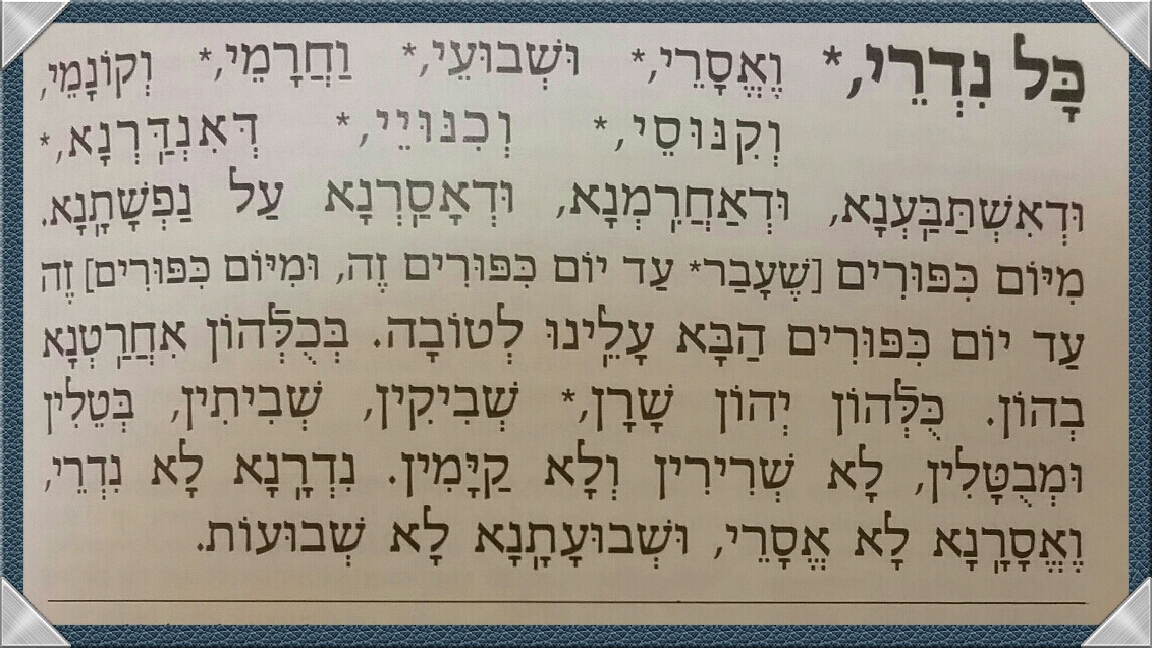 כָּל נִדְרֵי,* וֶאֱסָרֵי,* וּשְׁבוּעֵי,* וַחֲרָמֵי,* וְקוֹנָמֵי,
וְקִנּוּסֵי,* וְכִנּוּיֵי,* דְּאִנְדַּרְנָא,*
וּדְאִשְׁתַּבַּעְנָא, וּדְאַחֲרִמְנָא, וּדְאָסַרְנָא עַל נַפְשָׁתָנָא.
מִיּוֹם כִּפּוּרִים [שֶׁעָבַר* עַד יוֹם כִּפּוּרִים זֶה, וּמִיּוֹם כִּפּוּרִים] זֶה
עַד יוֹם כִּפּוּרִים הַבָּא עָלֵינוּ לְטוֹבָה. בְּכֻלְּהוֹן אִחֲרַטְנָא
בְהוֹן. כֻּלְּהוֹן יְהוֹן שָׁרָן,* שְׁבִיקִין, שְׁבִיתִין, בְּטֵלִין
וּמְבֻטָּלִין, לָא שְׁרִירִין וְלָא קַיָּמִין. נִדְרָנָא לָא נִדְרֵי,
וֶאֱסָרָנָא לָא אֱסָרֵי, וּשְׁבוּעָתָנָא לָא שְׁבוּעוֹת.